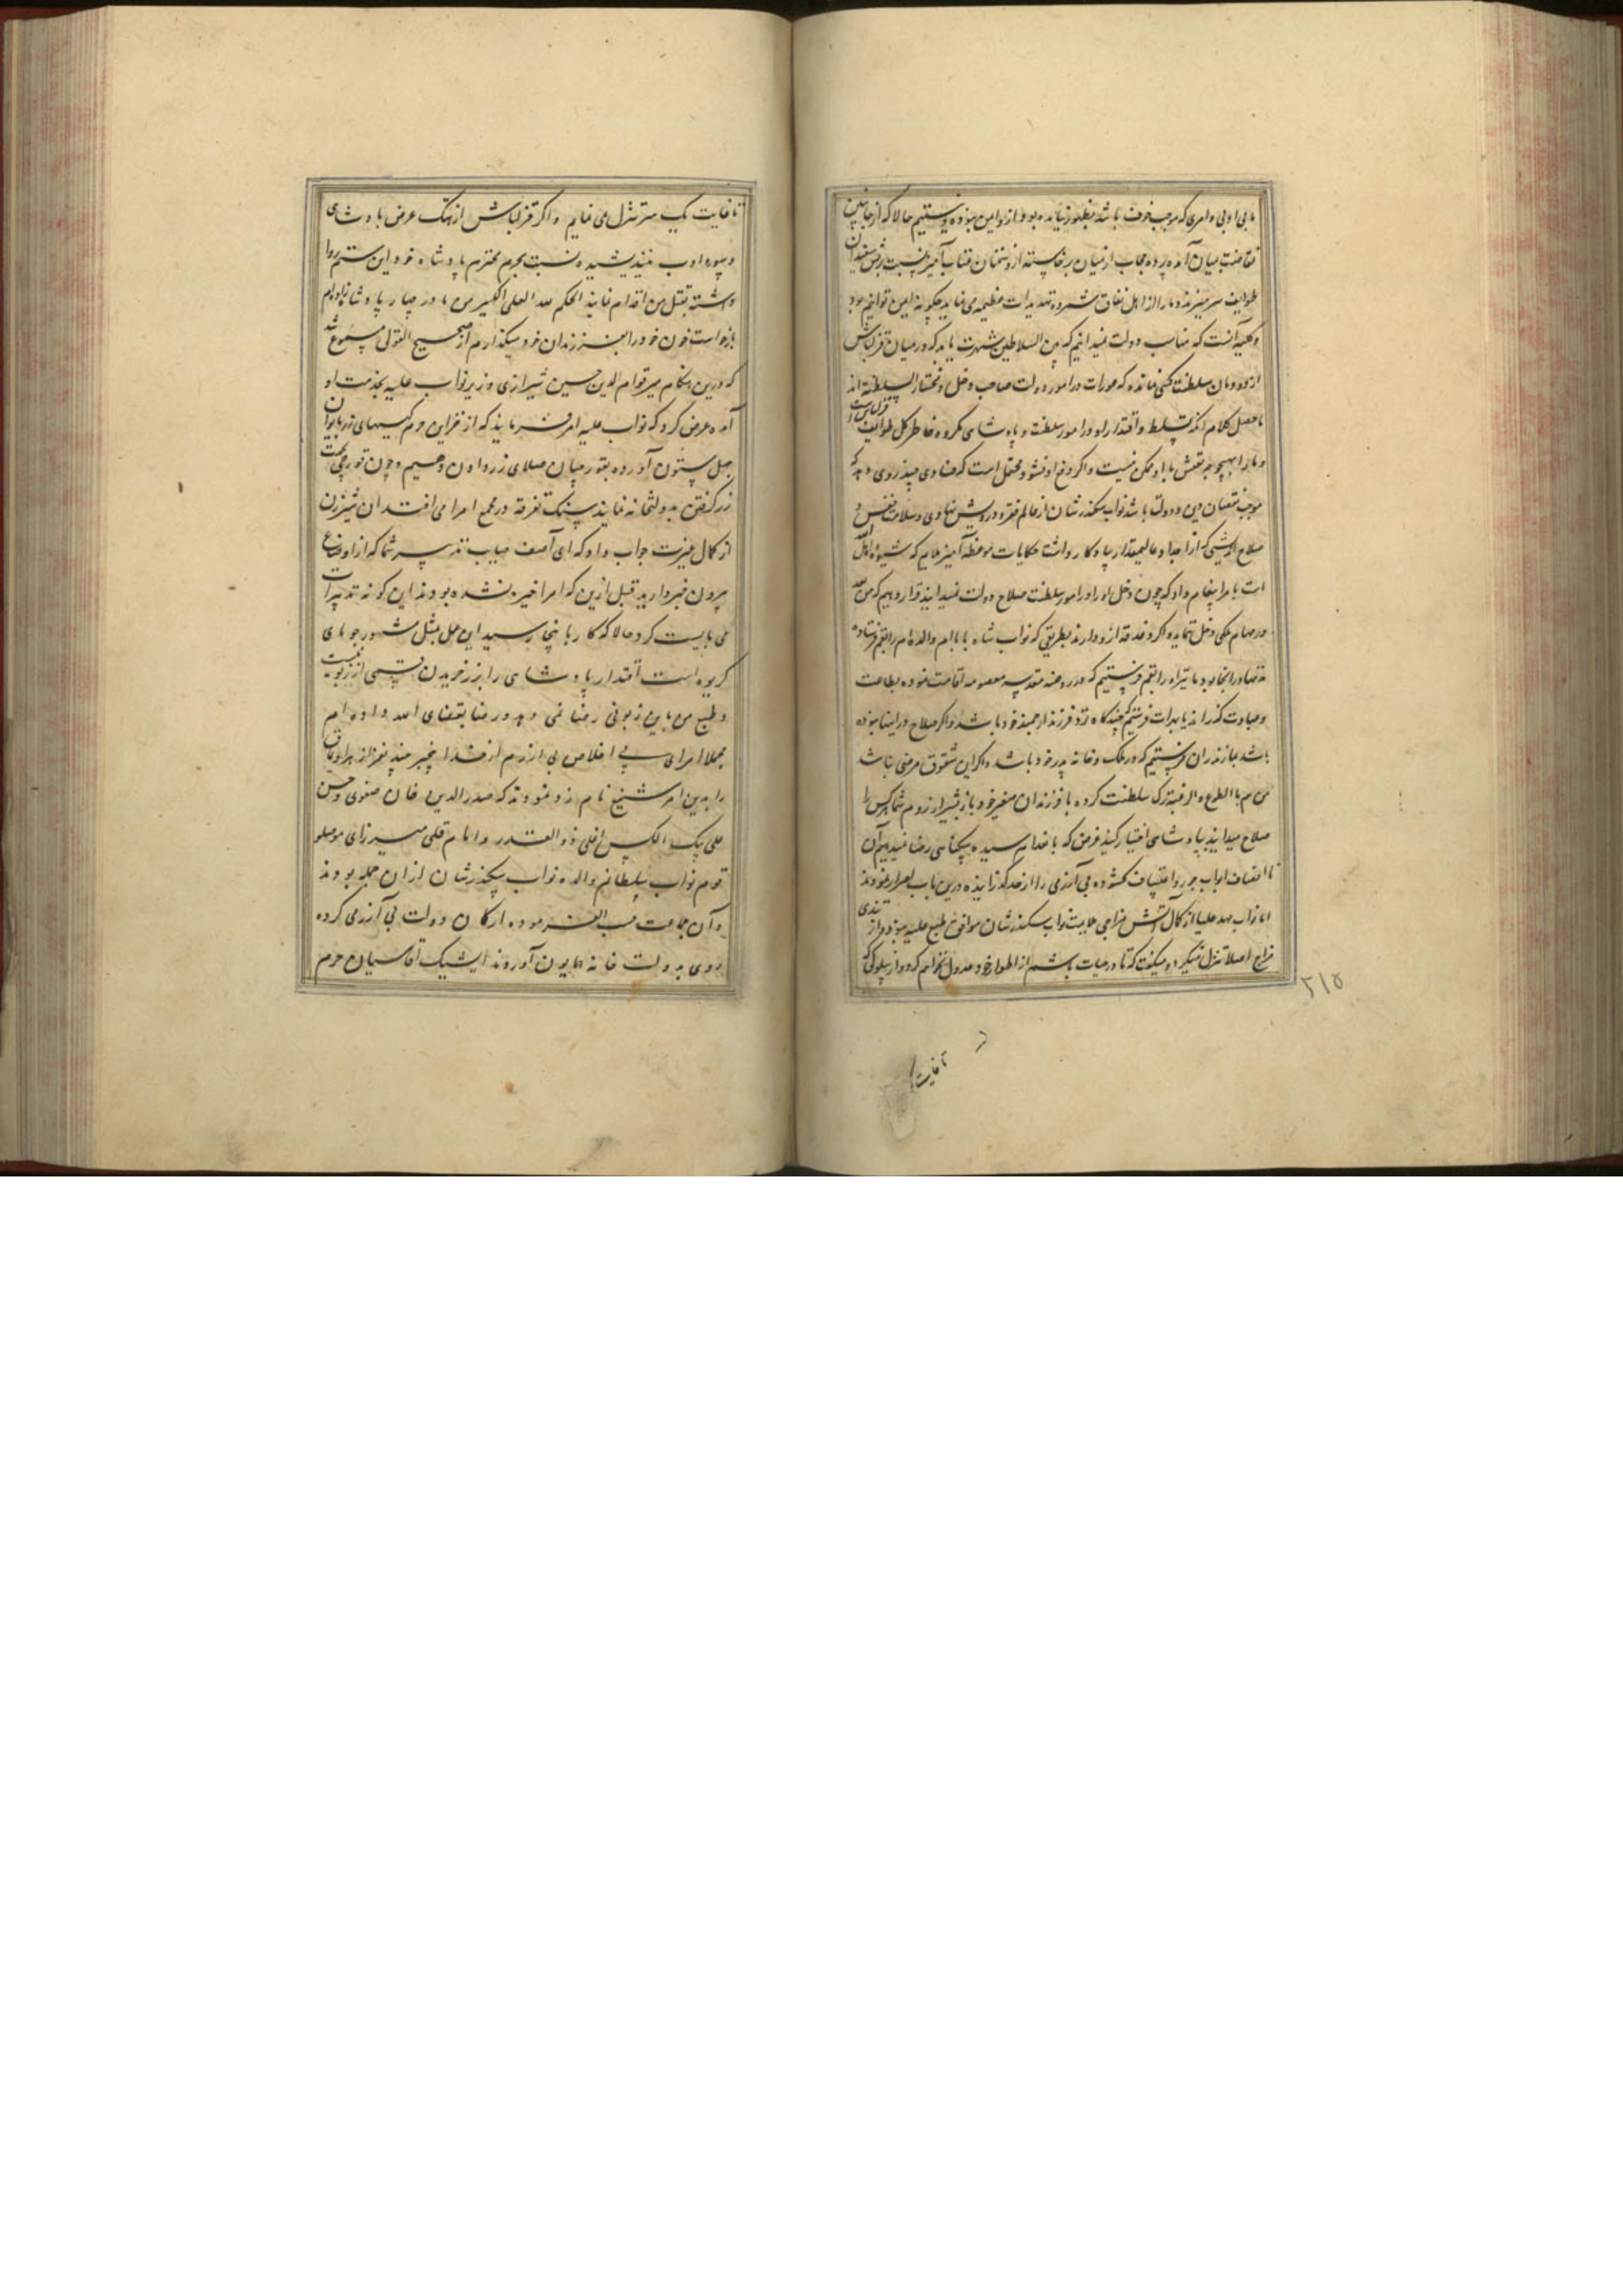 ما بی ادبی و امری که موجب خوف باشد بظهور نیامده بود از و ایمن نبوده نیستیم حالا که از جانبین
نقاضت بمیان آمده پرده حجاب از میان برخاسته از و سخنان عتاب آمیز نسبت بریش سفیدان
طوایف سر میزند و ما را از اهل نفاق شمرده تهدیدات عظیمه می نماید چگونه ایمن توانیم بود
و کلیه آنست که مناسب دولت نمیدانیم که بین السلاطین شهرت یابد که در میان قزلباش
از دودمان سلطنت کسی نمانده که عورات در امور دولت صاحب دخل و مختار السلطنه اند
ماحصل کلام آنکه تسلط و اقتدار او در امور سلطنت و پادشاهی مکروه خاطر کل طوایف قزلباش است
و ما را بهیچ وجه تعیش با او ممکن نیست و اگر دفع او نشود محتمل است که فسادی چند روی دهد که
موجب نقصان دین و دولت باشد نواب سکندرشان از عالم فقر و درویش نهادی و سلامت نفس و
صلاح اندیشی که از اجداد عالیمقدار بیادگار داشت حکایات موعظه آمیز ملایم که شیوه اهل
است بامرا پیغام داد که چون دخل او را در امور سلطنت صلاح دولت نمیدانید قرار دهیم که من بعد
در مهام ملکی دخل ننماید و اگر دغدغه از و دارند بطریقی که نواب شاه بابا ام والده ام را بقم فرستاده
مدتها در انجا بود ما نیز او را بقم فرستیم که در روضه مقدسه معصومه اقامت نموده بطاعت
و عبادت گذراند یا بهرات فرستیم که چندگاه نزد فرزند ارجمند خود باشد و اگر صلاح در اینها نبوده
باشد بمازندران فرستیم که در ملک و خانه پدر خود باشد و اگر این شقوق مرضی نباشد
من هم بالطوع والرغبه ترک سلطنت کرده با فرزندان صغیر خود باز بشیراز روم شما هر کس را
صلاح میدانید بپادشاهی اختیار کنید غرض که باعدام سیده بیگناهی رضا نمیدهیم آن
ناانصاف ابواب جور و اعتساف گشوده بی آزرمی را از حد گذرانیده درین باب اصرار نمودند
اما نواب مهد علیا از کمال آتش مزاجی ملایمت نواب سکندرشان موافق طبع علیه نبود و از تندی
مزاج اصلا تنزل نمیکرد و میگفت که تا در حیات باشم از اطوار خود عدول نخواهم کرد و از سلوکی که
۲۱۵
تا غایت
تا غایت یک سر مو تنزل می نمایم و اگر قزلباش از هتک عرض پادشاهی
و سوء ادب نیندیشیده نسبت بحرم محترم پادشاه خود این ستم روا
داشته بقتل من اقدام نمایند الحکم لله العلی الکبیر من مادر چهار پادشاهزاده ام
بازخواست خون خود را بفرزندان خود میگذارم از صحیح القولی مسموع شد
که درین هنگام میر قوام الدین حسین شیرازی وزیر نواب علیه بخدمت او
آمده عرض کرد که نواب علیه امر فرمایند که از خزاین حرم کیسهای زر بایوان
چهل ستون آورده بقورچیان صلای زر دادن دهیم و چون قورچی بجهت
زر گرفتن بدولتخانه نمایند سنگ تفرقه در مجمع امرا می افتد آن شیرزن
از کمال غیرت جواب داد که ای آصف جیاب تدبیر شما که از اوضاع
بیرون خبر دارید قبل ازین که امرا خیره نشده بودند این گونه تدبیرات
می بایست کرد حالا که کار باینجا رسید این عمل بمثل مشهور جو پای
کریوه است اقتدار پادشاهی را بزر خریدن قسمی از زبونیست
و طبع من باین زبونی رضا نمی دهد و رضا بقضای الله داده ام
مجملا امرای بی اخلاص بی آزرم از خدا بیخبر چند نفر از براویماق
را بدین امر شنیع نامزد نمودند که صدرالدین خان صفوی و حسن
علی بیک الکس اغلی ذوالقدر و امام قلی میرزای موصلو
قوم نواب سلطانم والده نواب سکندرشان از ان جمله بودند
و آن جماعت حسب الفرموده ارکان دولت بی آزرمی کرده
روی بدولت خانه همایون آوردند ایشیک آقاسیان حرم